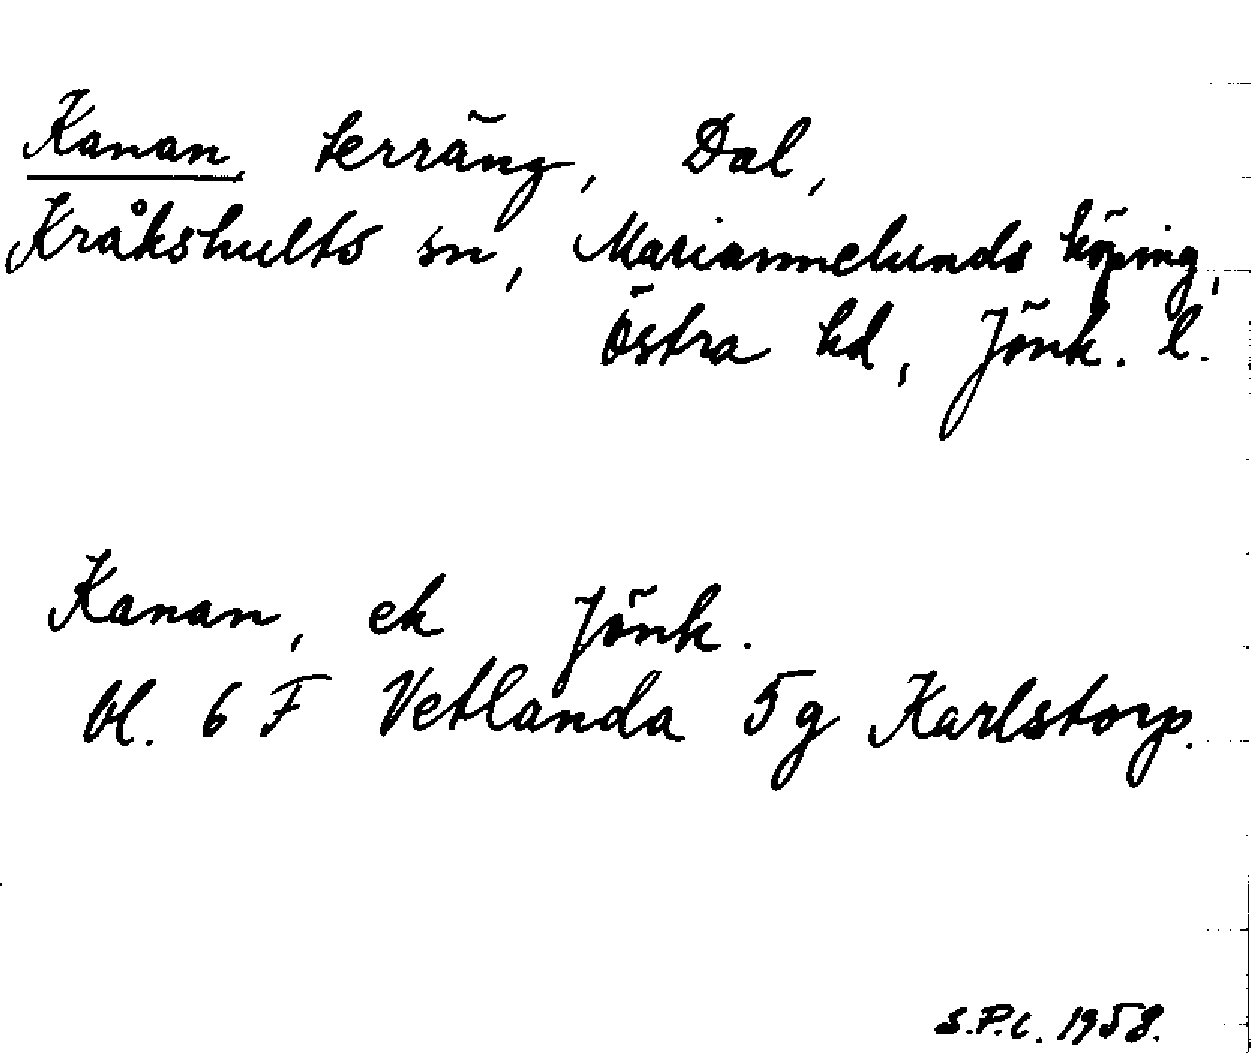 Kanan, terräng, Dal,
Kråkshults sn, Mariannelunds köping,
Östra hd, Jönk. l.
Kanan, ek Jönk.
bl. 6 F Vetlanda 5g Karlstorp.
S.P.C. 1958.